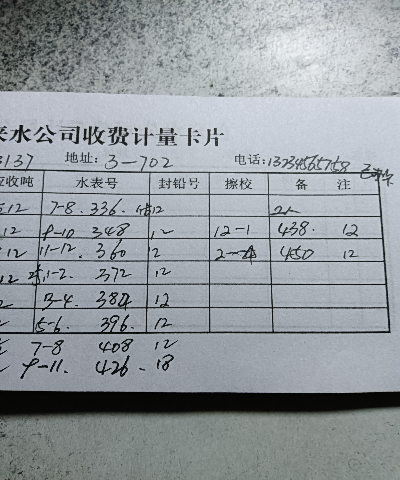 来水公司收费计量卡片
3137 地址: 3-702 电话: 13734565758
应收吨 水表号 封铅号 擦校 备 注
12 7-8. 336. 12 2人
12 9-10 348 12 12-1 438. 12
12 11-12. 360 12 2-4 450 12
12 1-2. 372 12
3-4. 384 12
5-6. 396. 12
7-8 408 12
9-11. 426. 18